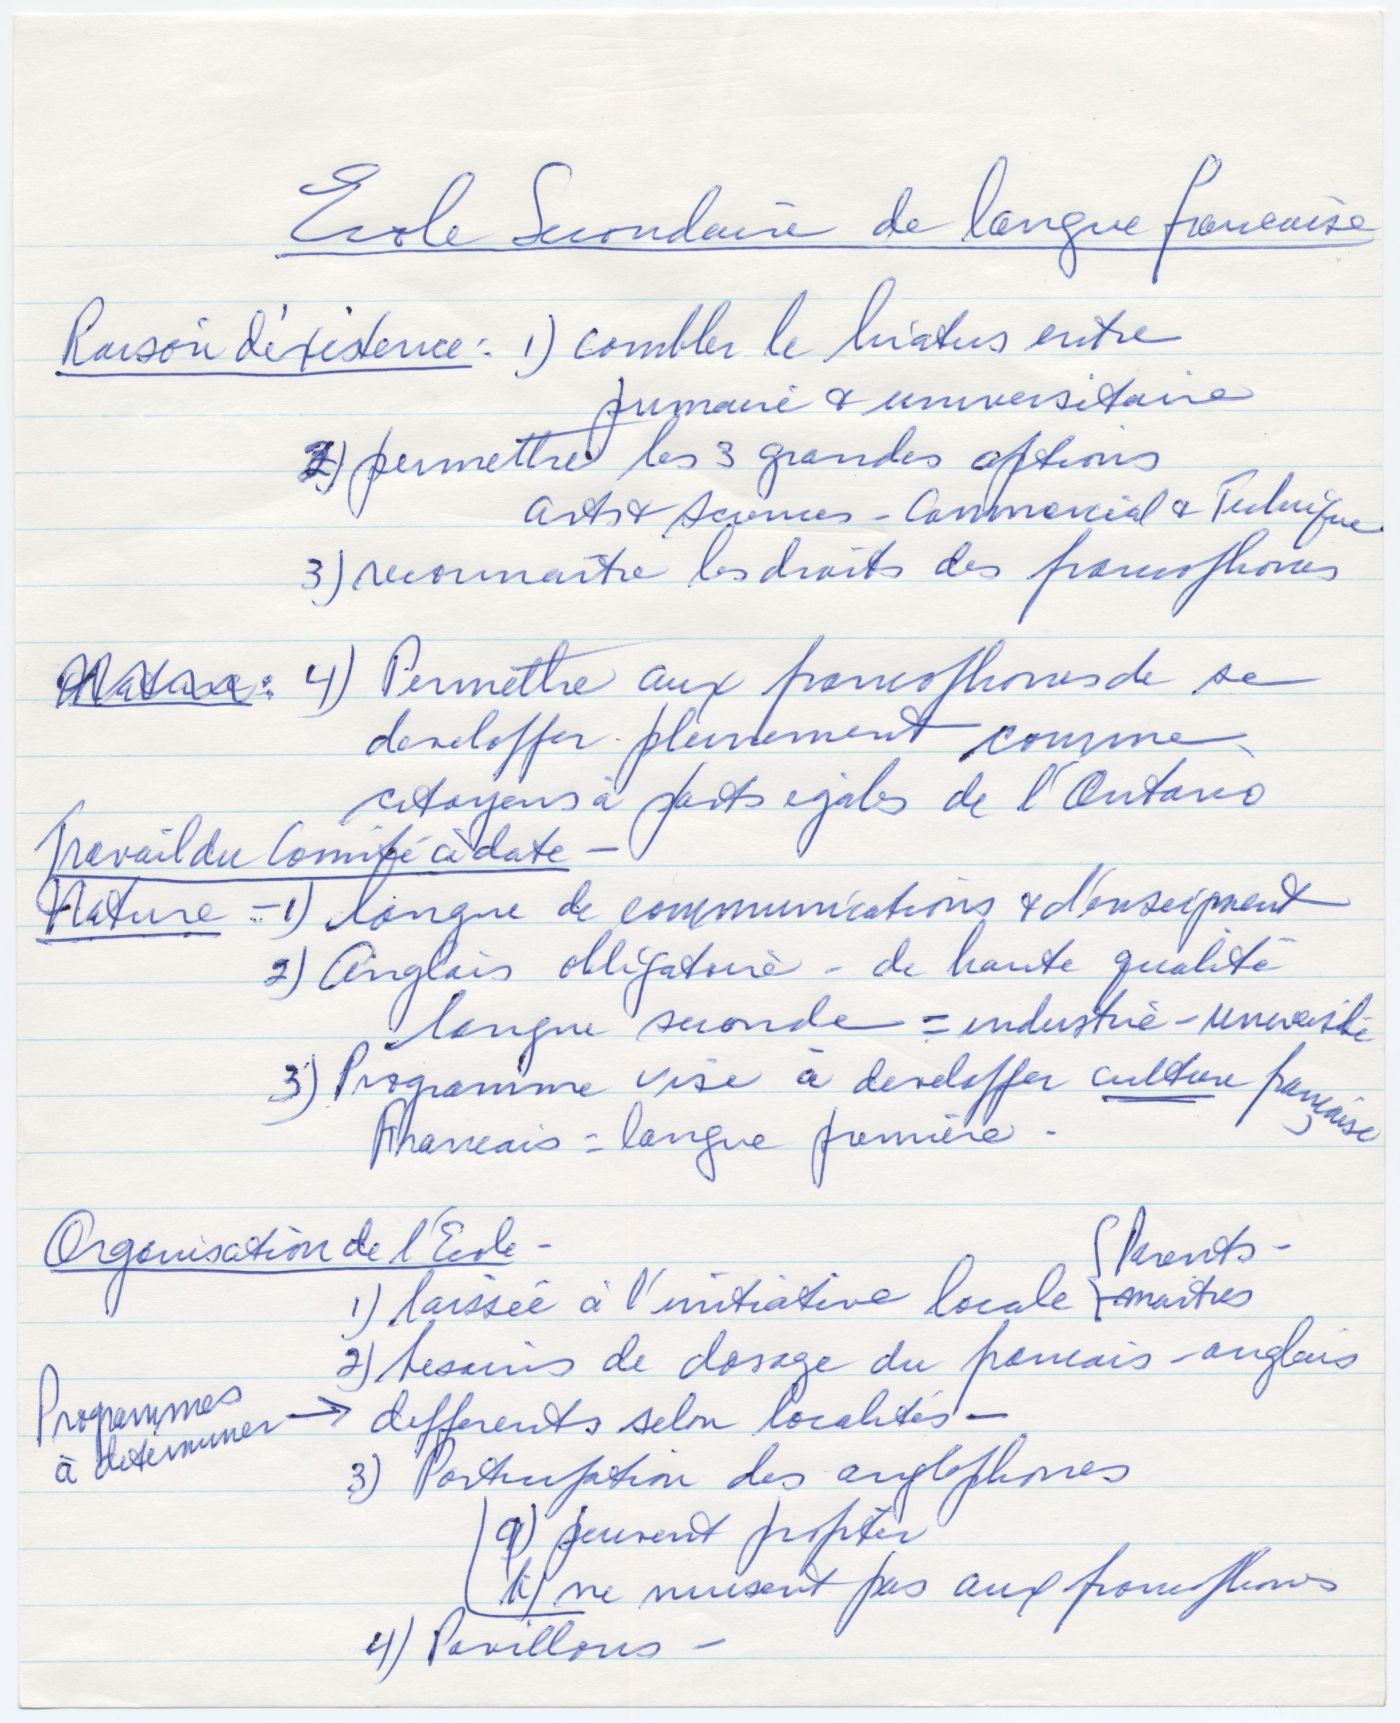 Ecole Secondaire de langue francaise
Raison d'existence : 1) combler le hiatus entre
primaire & universitaire
2) permettre les 3 grandes options
Arts & Sciences - Commercial & Technique
3) reconnaitre les droits des francophones
Nature : 4) Permettre aux francophones de se
developper pleinement comme
citoyens à parts egales de l'Ontario
Travail du Comité à date -
Nature - 1) langue de communications & d'enseignement
2) Anglais obligatoire - de haute qualité
langue seconde = industrie - université
3) Programme vise à developper culture française
Francais = langue première -
Organisation de l'Ecole -
1) laissée à l'initiative locale { Parents -
maitres
2) besoins de dosage du francais - anglais
Programmes à determiner → differents selon localités -
3) Participation des anglophones
a) peuvent profiter
b) ne nuisent pas aux francophones
4) Pavillons -